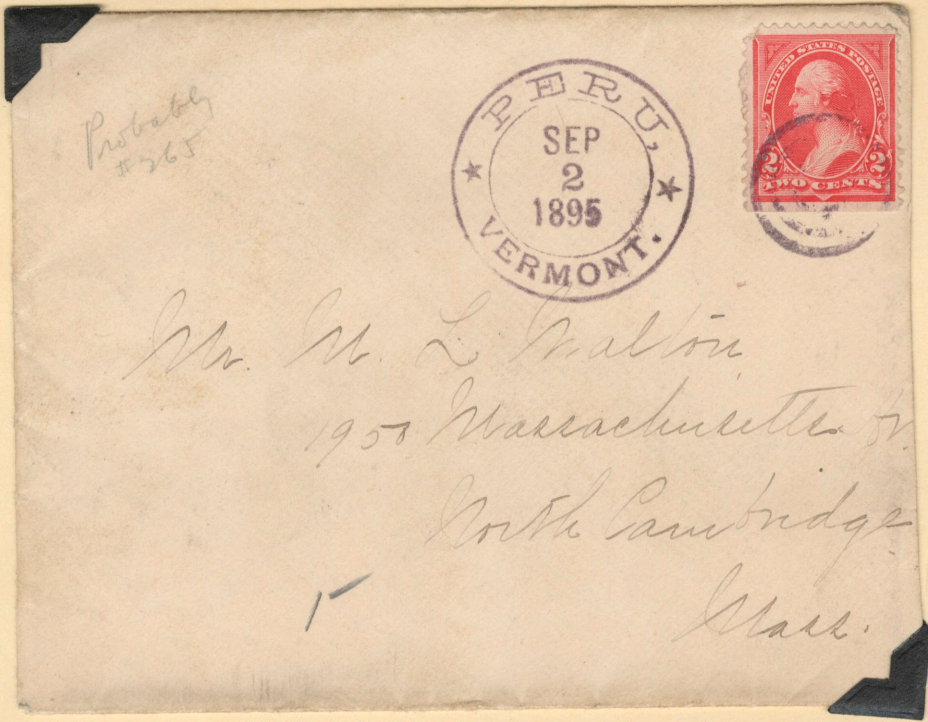 Probably
#265
PERU,
SEP
2
1895
VERMONT.
UNITED STATES POSTAGE
2 2
TWO CENTS
Mr. M. L Walton
1950 Massachusetts Av.
North Cambridge
Mass.